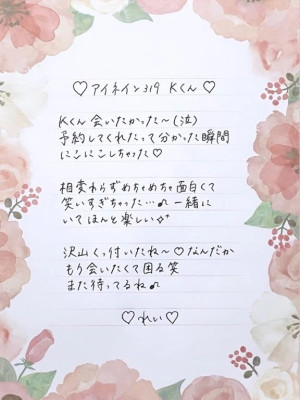 ♡ アイネイン319 Kくん ♡
Kくん会いたかった〜(泣)
予約してくれたって分かった瞬間
にこにこしちゃった♡
相変わらずめちゃめちゃ面白くて
笑いすぎちゃった…♪ 一緒に
いてほんと楽しい✧⁺
沢山くっ付いたね〜♡なんだか
もう会いたくて困る笑
また待ってるね♪
♡れい♡